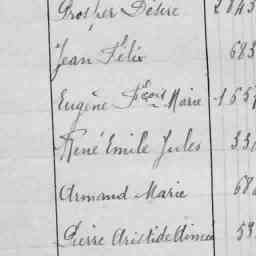 Prosper Désiré
Jean Félix 683
Eugène Marie 1657
René Emile Jules 33
Armand Marie 68
Pierre Aristide Aimée 53